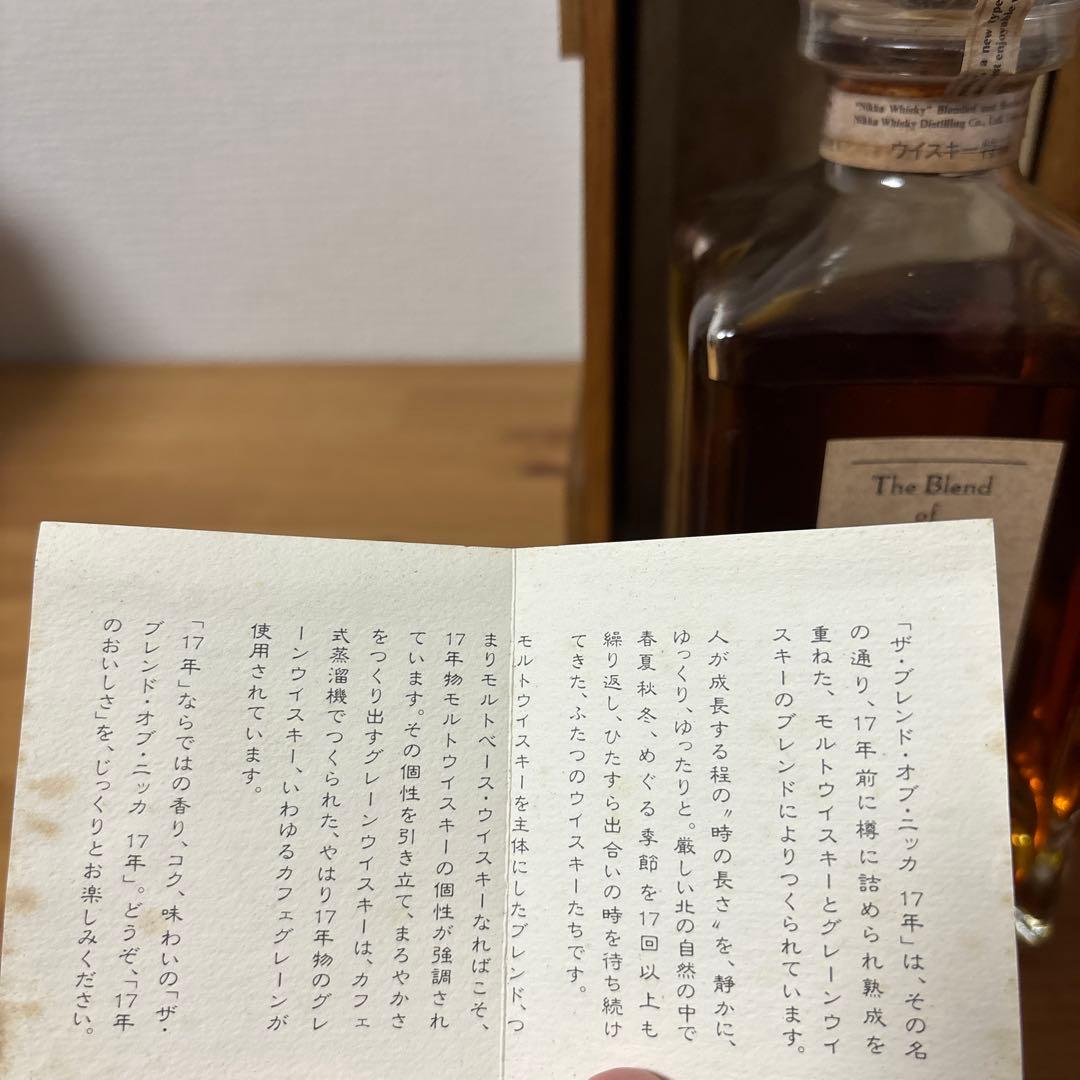 a new type
st enjoyable
"Nikka Whisky" Blended and
Nikka Whisky Distilling Co., Ltd.
ウイスキー特
The Blend
of
「ザ・ブレンド・オブ・ニッカ 17年」は、その名
の通り、17年前に樽に詰められ熟成を
重ねた、モルトウイスキーとグレーンウイ
スキーのブレンドによりつくられています。
人が成長する程の〝時の長さ〟を、静かに、
ゆっくり、ゆったりと。厳しい北の自然の中で
春夏秋冬、めぐる季節を17回以上も
繰り返し、ひたすら出合いの時を待ち続け
てきた、ふたつのウイスキーたちです。
モルトウイスキーを主体にしたブレンド、つ
まりモルトベース・ウイスキーなればこそ、
17年物モルトウイスキーの個性が強調され
ています。その個性を引き立て、まろやかさ
をつくり出すグレーンウイスキーは、カフェ
式蒸溜機でつくられた、やはり17年物のグレ
ーンウイスキー、いわゆるカフェグレーンが
使用されています。
「17年」ならではの香り、コク、味わいの「ザ・
ブレンド・オブ・ニッカ 17年」。どうぞ、「17年
のおいしさ」を、じっくりとお楽しみください。